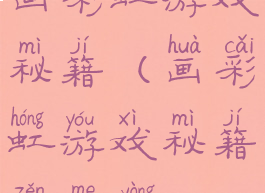 画彩虹游戏
mì jí huà cǎi
秘籍（画彩
hóng yóu xì mì jí
虹游戏秘籍
zěn me yòng